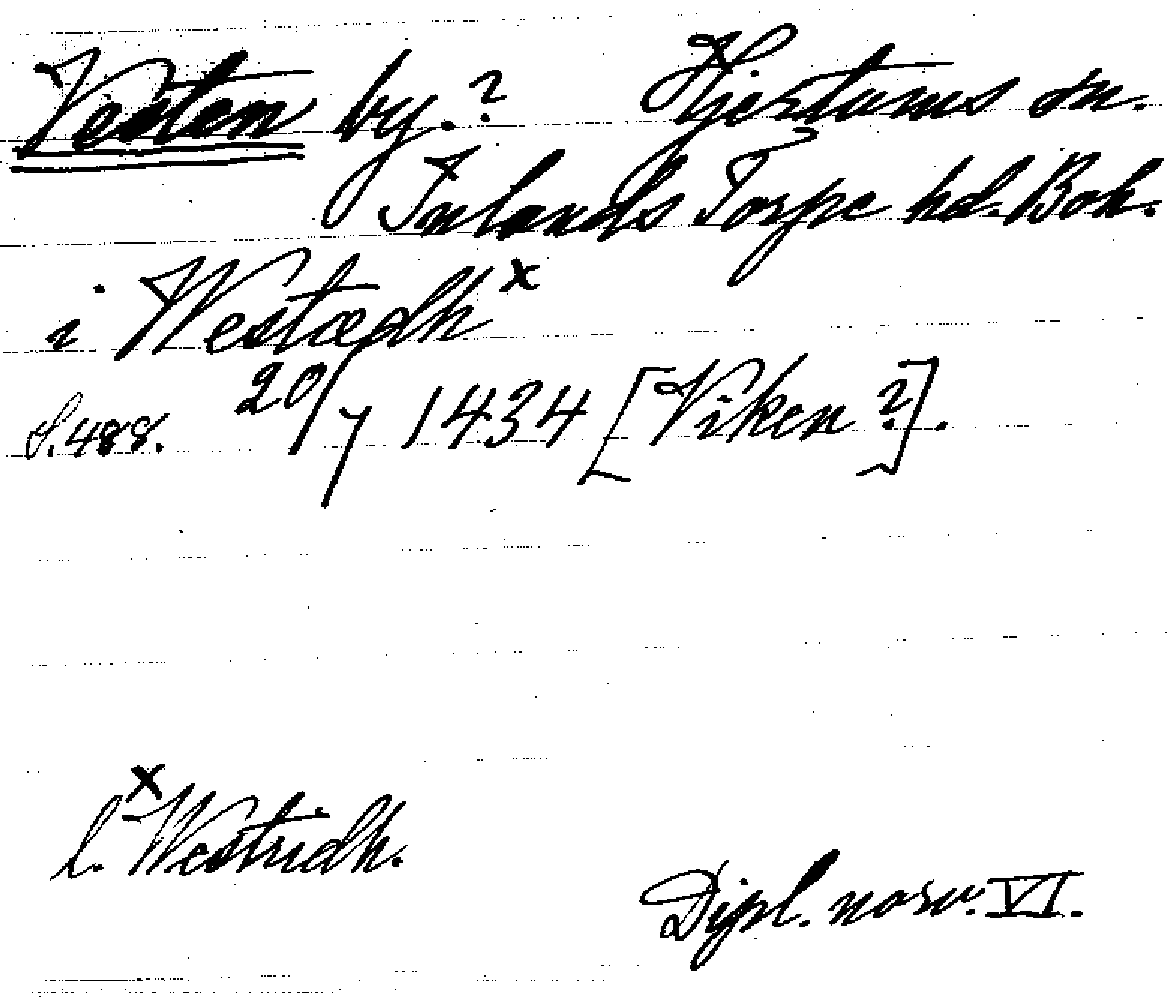 Vesten by.? Hjertums sn.
Inlands Torpe hd. Boh.
i Westædh x
S. 488. 20/7 1434 [Viken ?].
x
l. Westridh.
Dipl. norv. VI.